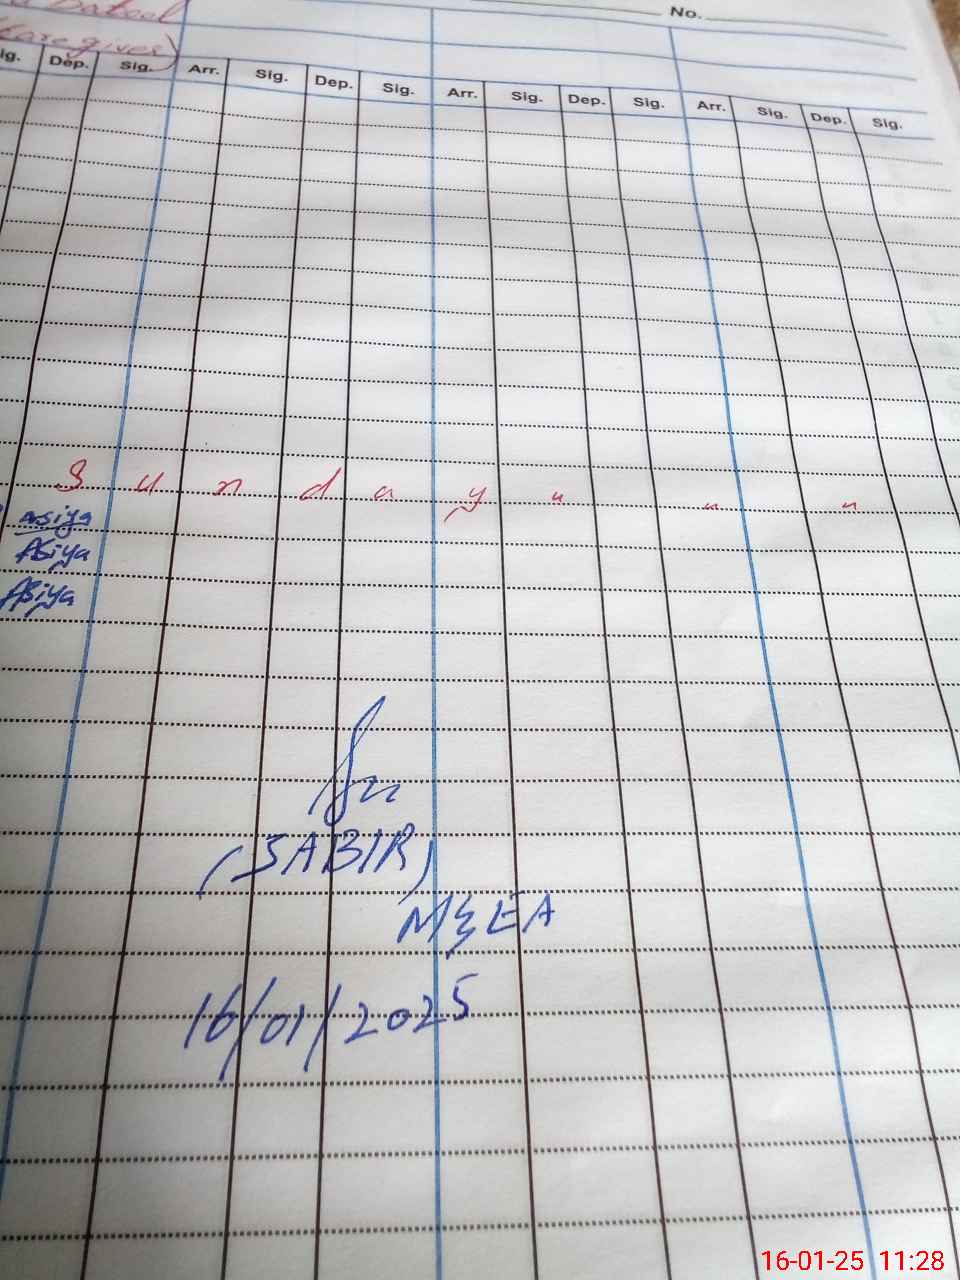 No.
Batool
(Care giver)
ig. Dep. Sig. Arr. Sig. Dep. Sig. Arr. Sig. Dep. Sig. Arr. Sig. Dep. Sig.
S u n d a y " " "
asiya
Asiya
Asiya
(SABIR)
M&EA
16/01/2025
16-01-25 11:28